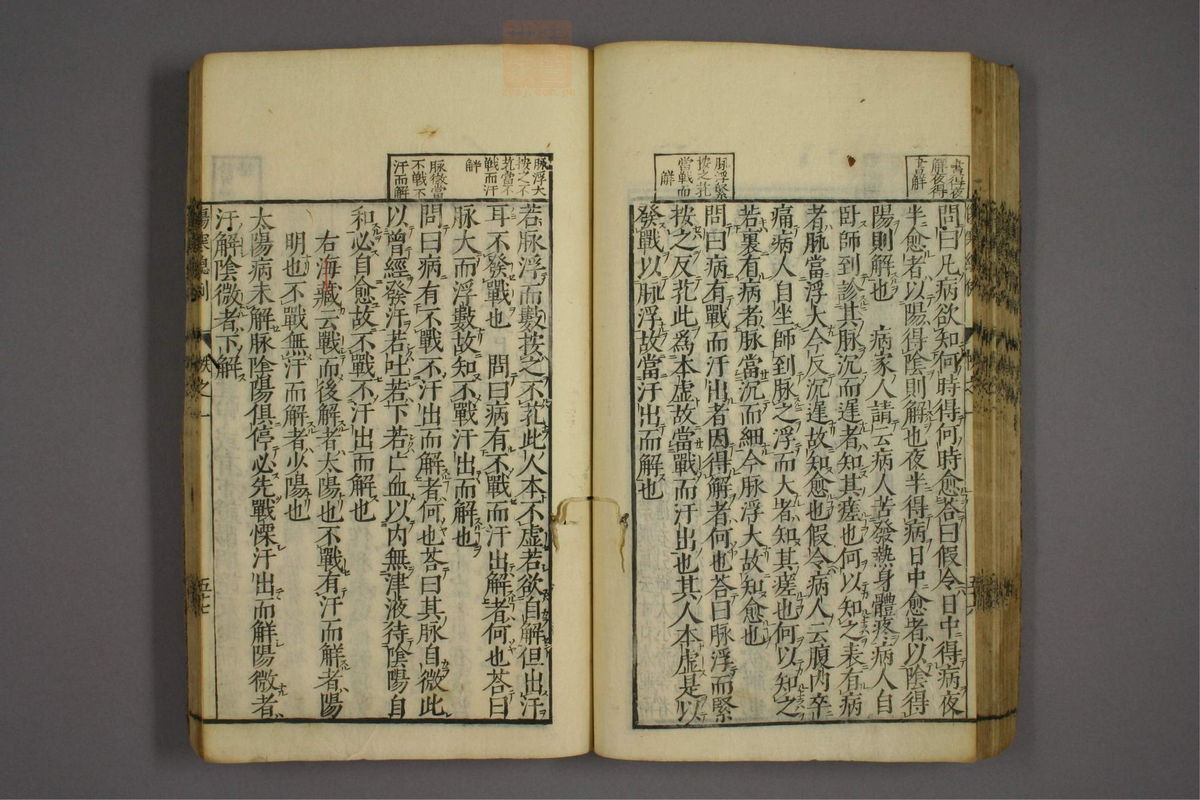 晝得夜
解夜得
晝解
問曰凡病欲知何時得何時愈荅曰假令日中得病夜
半愈者以陽得陰則解也夜半得病日中愈者以陰得
陽則解也　病家人請云病人苦發熱身體疼病人自
臥師到診其脉沉而遲者知其瘥也何以知之表有病
者脉當浮大今反沉遲故知愈也假令病人云腹內卒
痛病人自坐師到脉之浮而大者知其瘥也何以知之
若裏有病者脉當沉而細今脉浮大故知愈也
脉浮緊
按之芤
當戰而
解
問曰病有戰而汗出者因得解者何也荅曰脉浮而緊
按之反芤此爲本虚故當戰而汗出也其人本虚是以
發戰以脉浮故當汗出而解也
五十六
脉浮大
按之不
芤當不
戰而汗
解
若脉浮而數按之不芤此人本不虚若欲自解但出汗
耳不發戰也　問曰病有不戰而汗出解者何也荅曰
脉大而浮數故知不戰汗出而解也
脉微當
不戰不
汗而解
問曰病有不戰不汗出而解者何也荅曰其脉自微此
以曾經發汗若吐若下若亡血以內無津液待陰陽自
和必自愈故不戰不汗出而解也
右海藏云戰而後解者太陽也不戰有汗而解者陽
明也不戰無汗而解者少陽也
太陽病未解脉陰陽俱停必先戰慄汗出而解陽微者
汗解陰微者下解
五十七